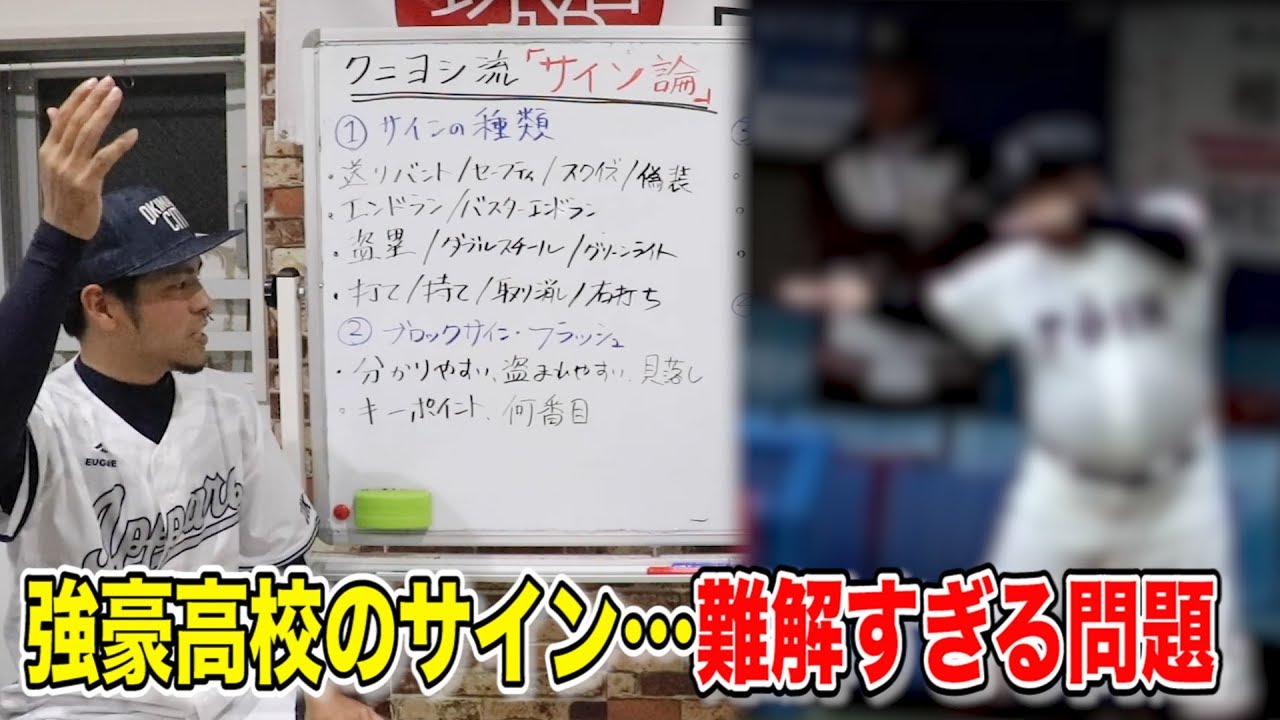 クニヨシ流「サイン論」
① サインの種類
・送りバント/セーフティ/スクイズ/偽装
・エンドラン/バスターエンドラン
・盗塁/ダブルスチール/グリーンライト
・打て/待て/取り消し/右打ち
② ブロックサイン・フラッシュ
・分かりやすい、盗まれやすい、見落し
・キーポイント、何番目
強豪高校のサイン…難解すぎる問題